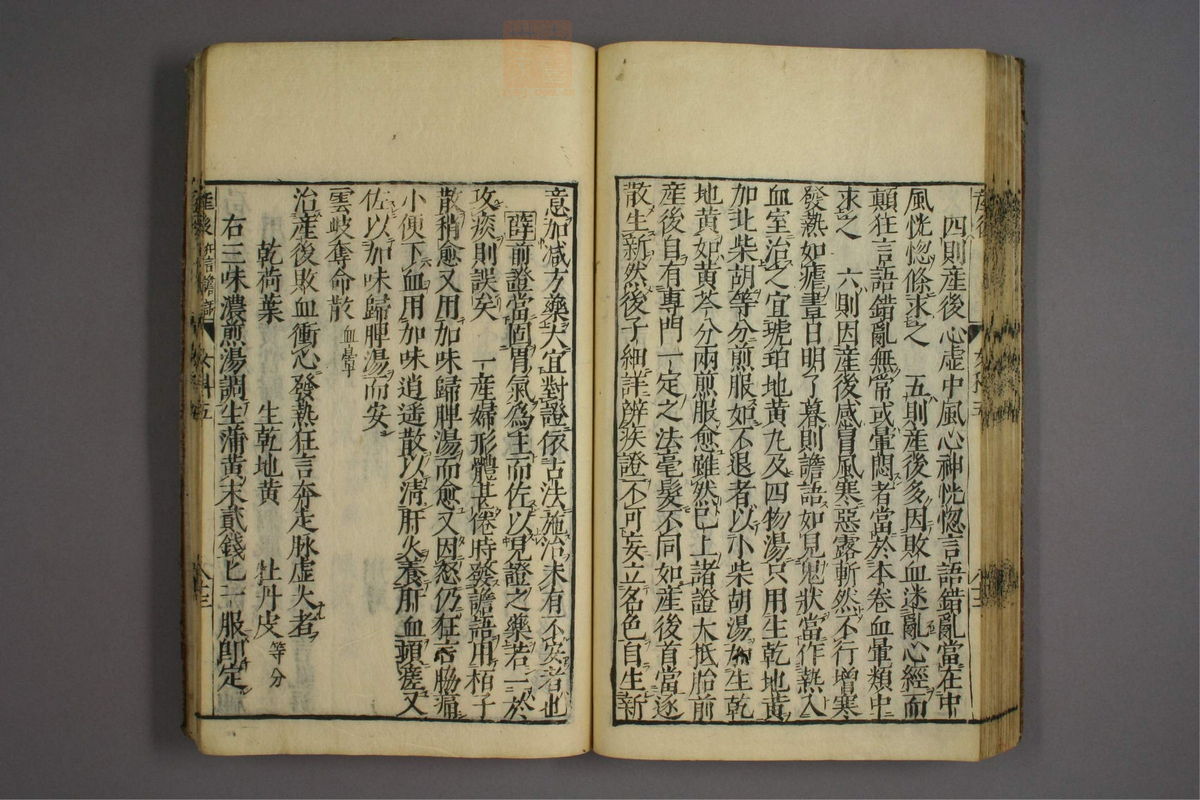 四則産後心虛中風心神恍惚言語錯亂當在中
風恍惚條求之　五則産後多因敗血迷亂心經而
顛狂言語錯亂無常或暈悶者當於本卷血暈類中
求之　六則因産後感冒風寒惡露斬然不行增寒
發熱如瘧晝日明了暮則譫語如見鬼狀當作熱入
血室治之宜琥珀地黃丸及四物湯只用生乾地黃
加北柴胡等分煎服如不退者以小柴胡湯加生乾
地黃如黃芩分兩煎服愈雖然已上諸證大抵胎前
産後自有專門一定之法毫髮不同如産後首當逐
散生新然後子細詳辨疾證不可妄立名色自生新
意加減方藥大宜對證依古法施治未有不安者也
薛前證當固胃氣爲主而佐以見證之藥若一於
攻痰則誤矣　一産婦形體甚倦時發譫語用栢子
散稍愈又用加味歸脾湯而愈又因怒仍狂言脇痛
小便下血用加味逍遙散以淸肝火養肝血頓瘥又
佐以加味歸脾湯而安
雲岐奪命散血暈
治産後敗血衝心發熱狂言奔走脉虛大者
乾荷葉　生乾地黃　牡丹皮等分
右三味濃煎湯調生蒲黃末貳錢匕一服卽定
産後　女科五